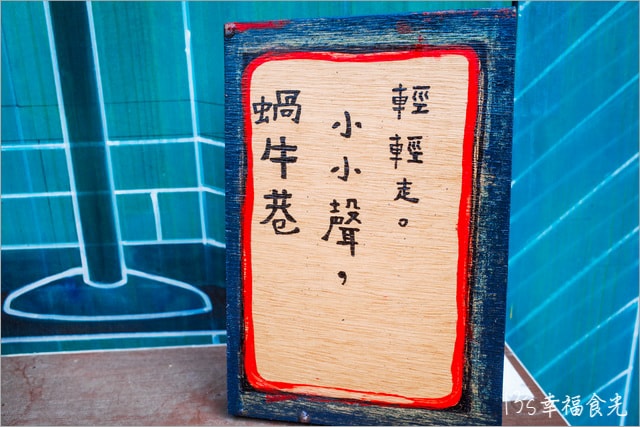 輕輕走。
小小聲，
蝸牛巷
135幸福食光